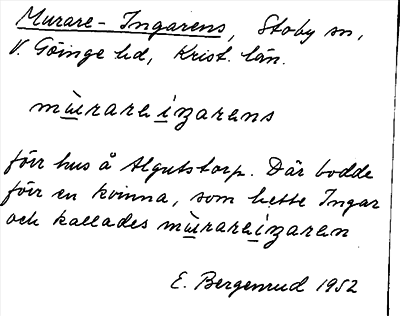 Murare-Ingarens, Stoby sn,
V. Göinge hd, Krist. län.
mùrara ìŋarans
förr hus å Algutstorp. Där bodde
förr en kvinna, som hette Ingar
och kallades mùraraìŋaran
E. Bergenrud 1952